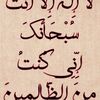 لَا إِلَٰهَ إِلَّا أَنْتَ
سُبْحَانَكَ
إِنِّي كُنْتُ
مِنَ الظَّالِمِينَ